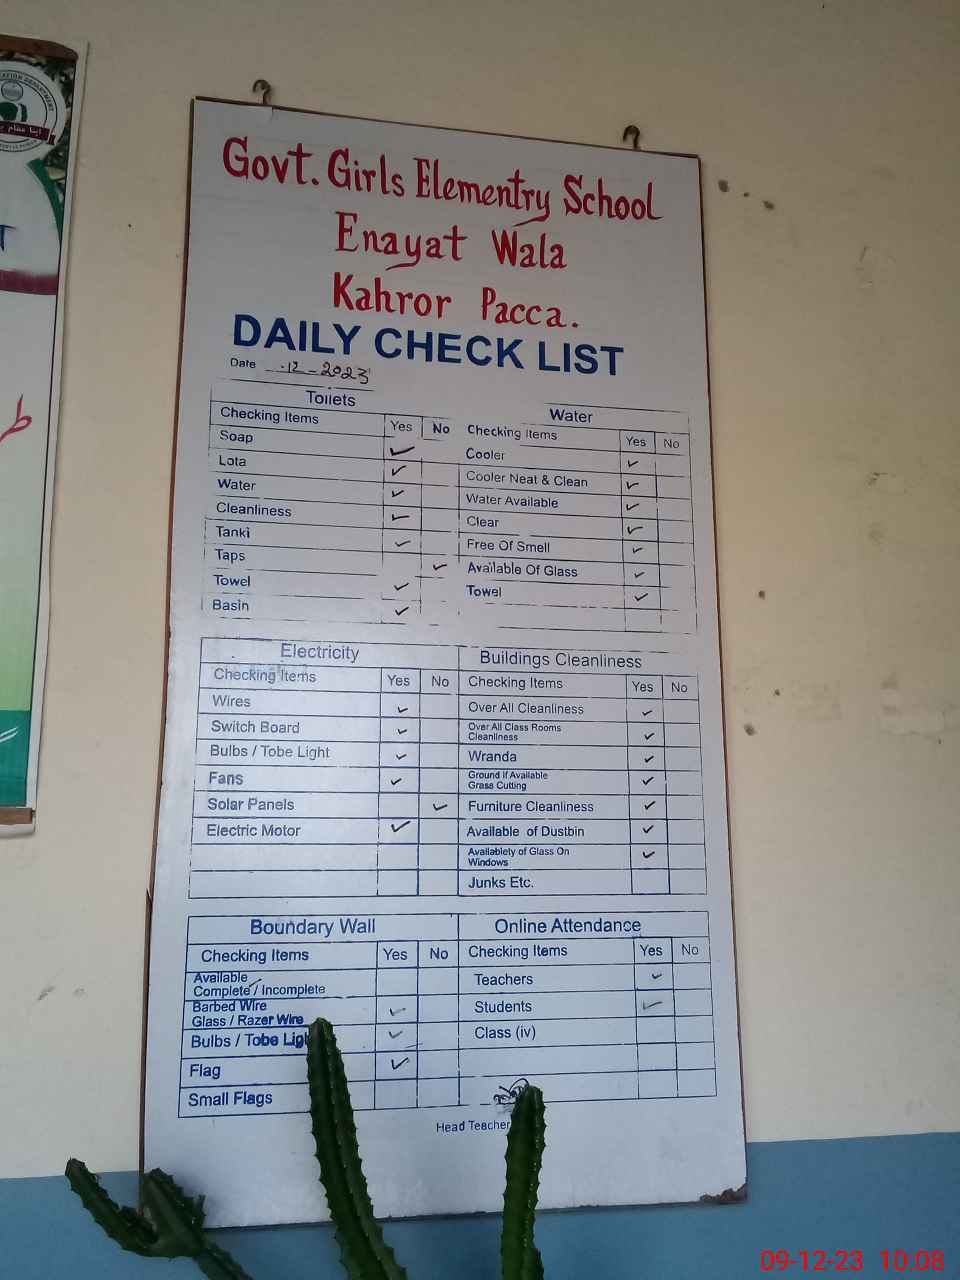 Govt. Girls Elementry School
Enayat Wala
Kahror Pacca.
DAILY CHECK LIST
Date .12-2023
Toilets
Checking Items Yes No
Soap ✓
Lota ✓
Water ✓
Cleanliness ✓
Tanki ✓
Taps ✓
Towel ✓
Basin ✓
Water
Checking Items Yes No
Cooler ✓
Cooler Neat & Clean ✓
Water Available ✓
Clear ✓
Free Of Smell ✓
Available Of Glass ✓
Towel ✓
Electricity
Checking Items Yes No
Wires ✓
Switch Board ✓
Bulbs / Tobe Light ✓
Fans ✓
Solar Panels ✓
Electric Motor ✓
Buildings Cleanliness
Checking Items Yes No
Over All Cleanliness ✓
Over All Class Rooms
Cleanliness ✓
Wranda ✓
Ground If Available
Grass Cutting ✓
Furniture Cleanliness ✓
Available of Dustbin ✓
Availablety of Glass On
Windows ✓
Junks Etc.
Boundary Wall
Checking Items Yes No
Available ✓
Complete / Incomplete
Barbed Wire
Glass / Razer Wire ✓
Bulbs / Tobe Light ✓
Flag ✓
Small Flags
Online Attendance
Checking Items Yes No
Teachers ✓
Students ✓
Class (iv)
Head Teacher
09-12-23 10:08